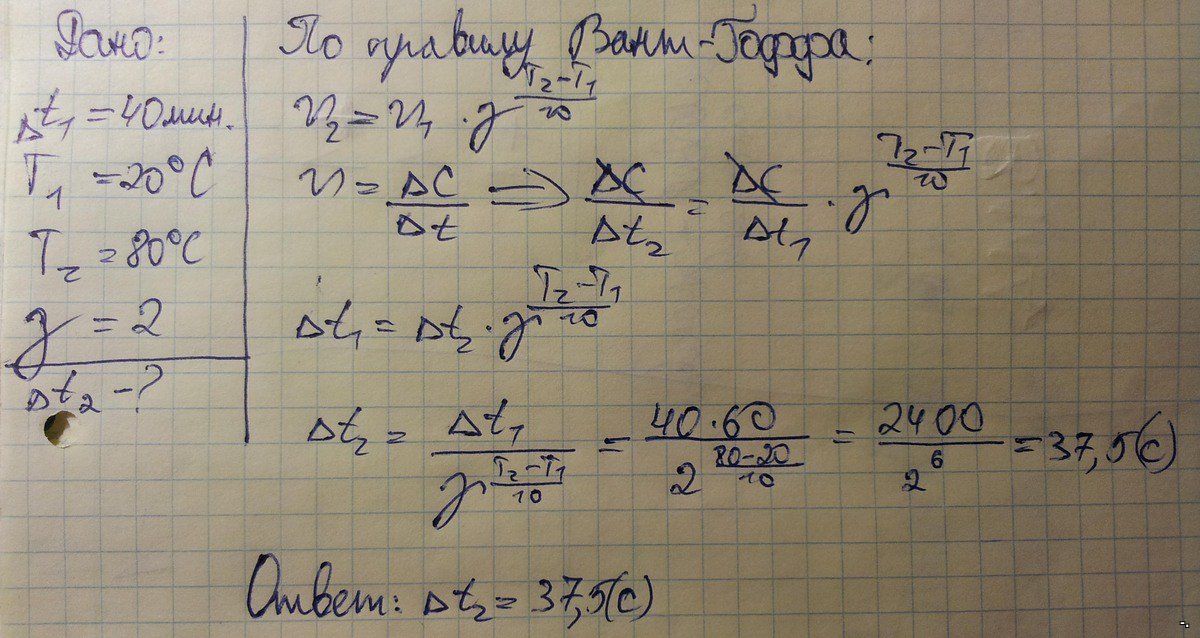 Дано:
Δt₁ = 40 мин.
T₁ = 20°C
T₂ = 80°C
γ = 2
Δt₂ - ?
По правилу Вант-Гоффа:
v₂ = v₁ · γ^((T₂-T₁)/10)
v = ΔC/Δt ⇒ ΔC/Δt₂ = ΔC/Δt₁ · γ^((T₂-T₁)/10)
Δt₁ = Δt₂ · γ^((T₂-T₁)/10)
Δt₂ = Δt₁/γ^((T₂-T₁)/10) = 40·60/2^((80-20)/10) = 2400/2⁶ = 37,5(с)
Ответ: Δt₂ = 37,5(с)